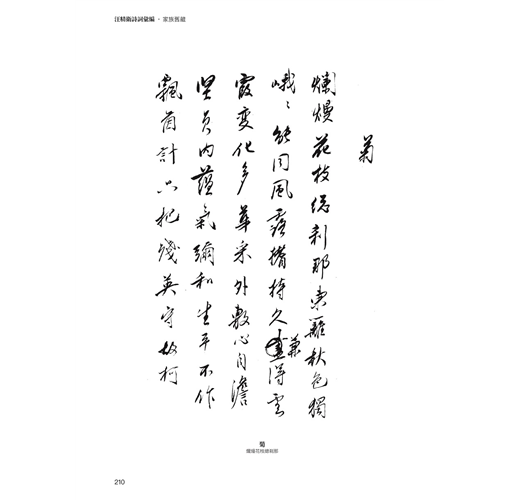 汪精衛詩詞彙編・家族舊藏
菊
爛熳花枝總刹那東籬秋色獨
峨〻能同風露撐持久兼得雲
霞變化多華采外敷心自澹
堅貞內蘊氣彌和生平不作
飄茵計只把殘英守故柯
菊
爛熳花枝總剎那
210